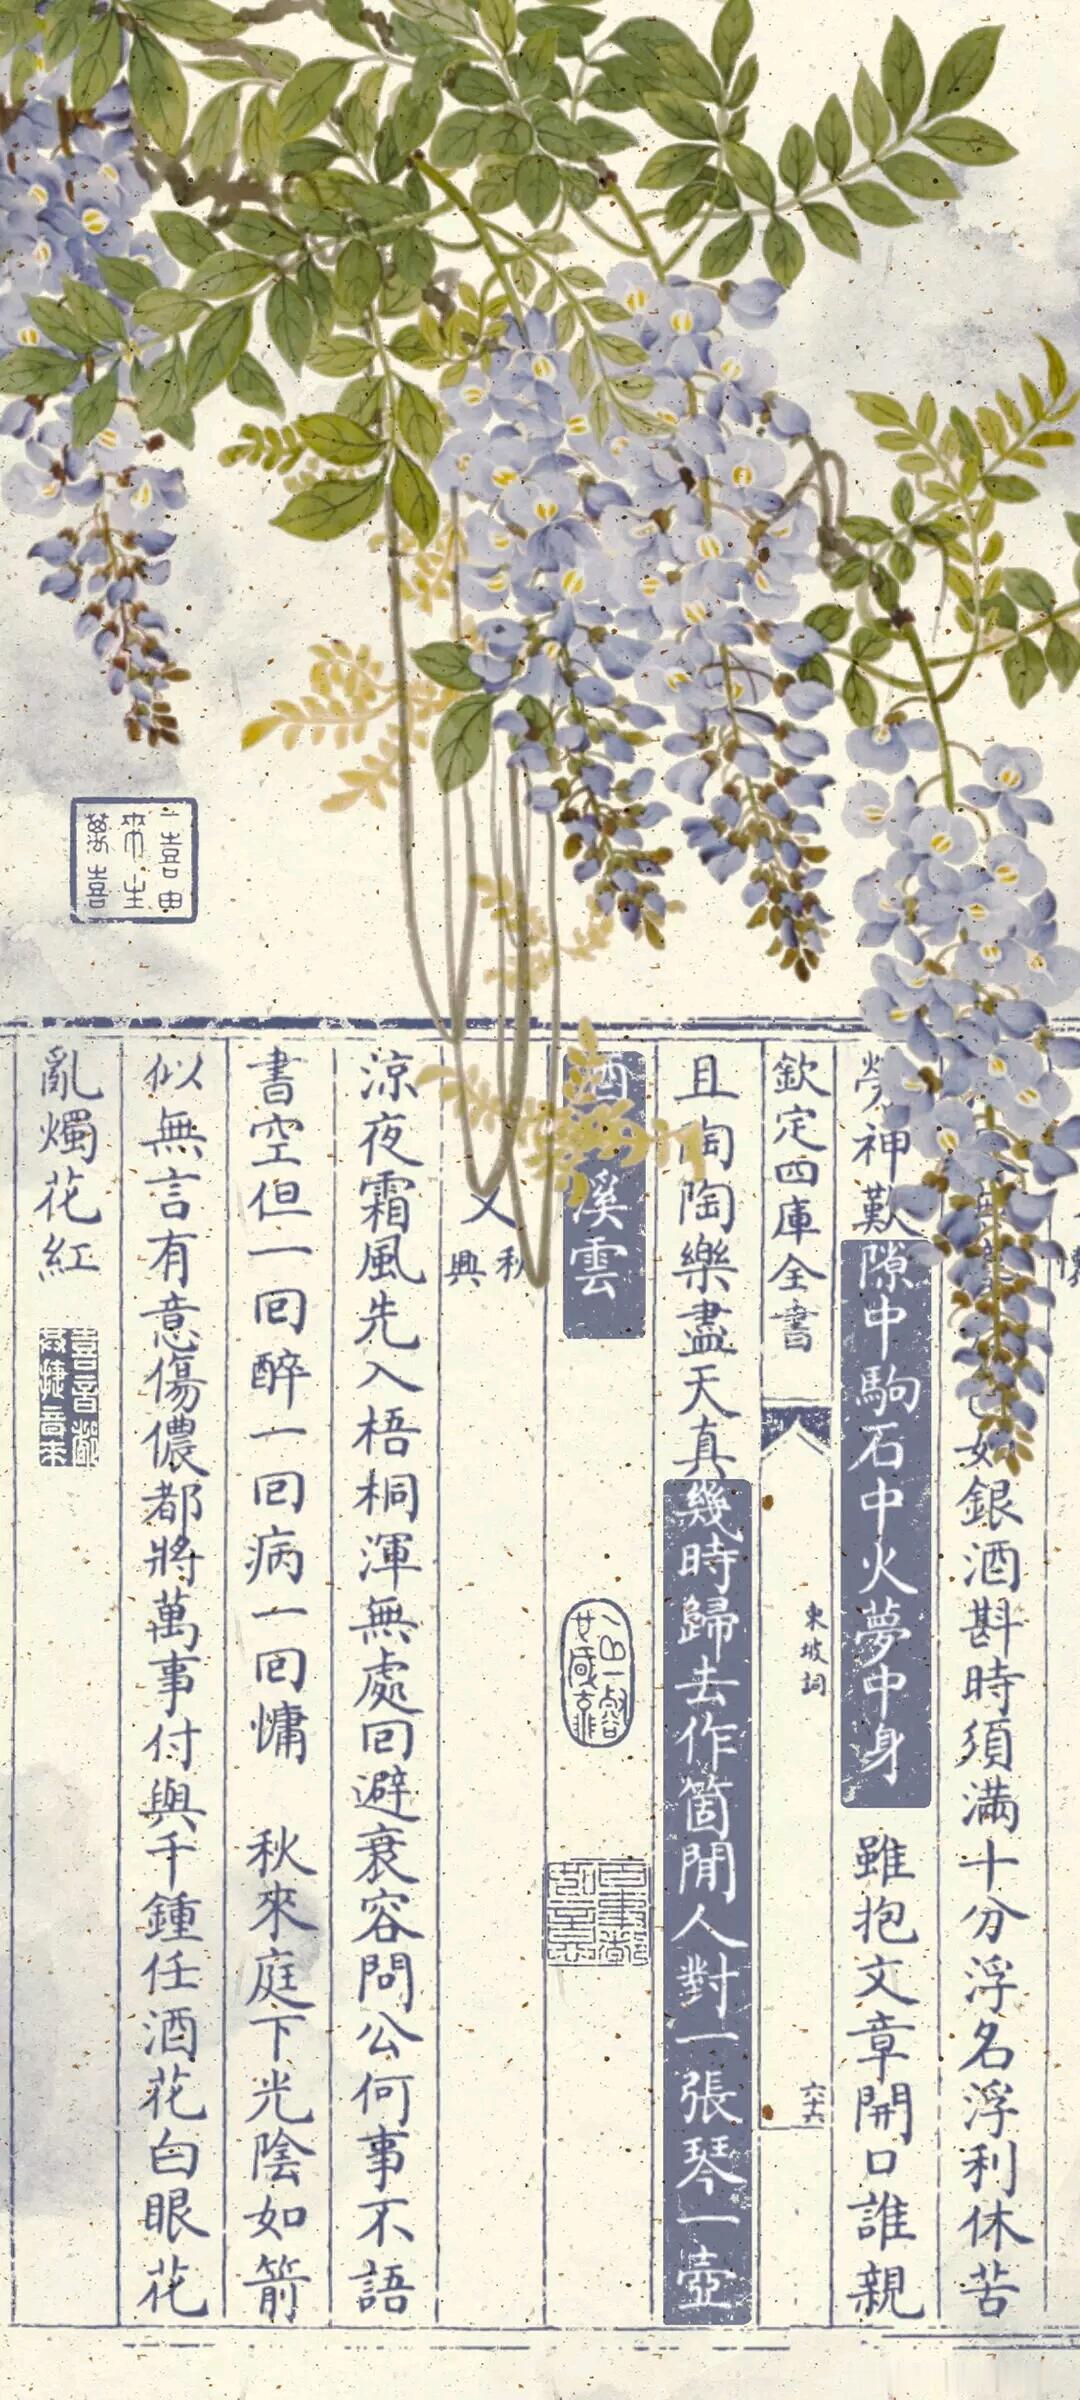 如銀酒斟時須滿十分浮名浮利休苦
勞神歎隙中駒石中火夢中身 雖抱文章開口誰親
欽定四庫全書
東坡詞
六十六
且陶陶樂盡天真幾時歸去作箇閒人對一張琴一壺
酒 溪雲
又 秋興
涼夜霜風先入梧桐渾無處回避衰容問公何事不語
書空但一回醉一回病一回慵 秋來庭下光陰如箭
似無言有意傷儂都將萬事付與千鍾任酒花白眼花
亂燭花紅